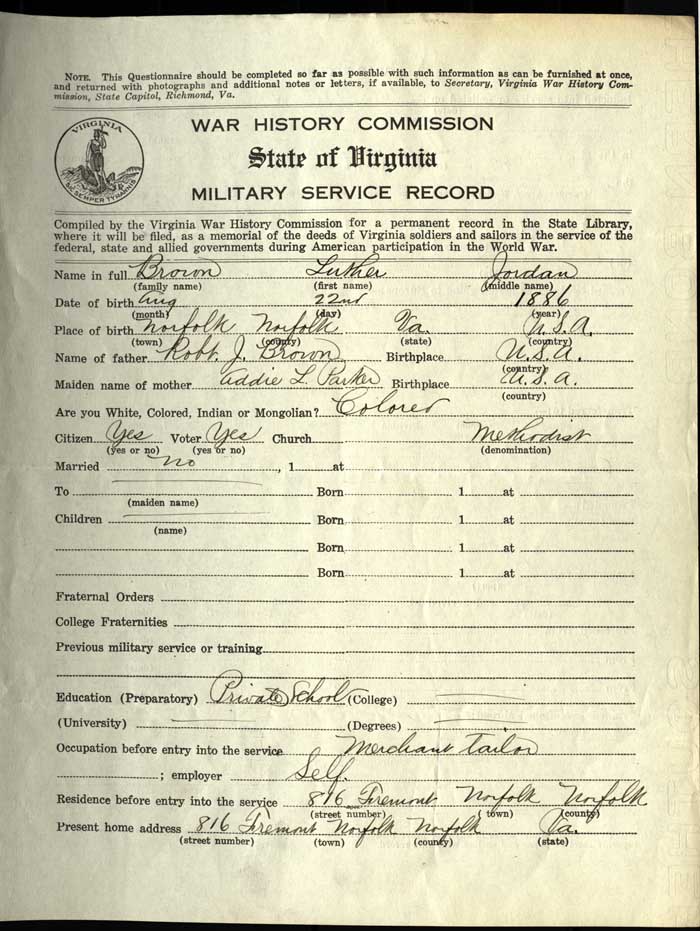 NOTE. This Questionnaire should be completed so far as possible with such information as can be furnished at once,
and returned with photographs and additional notes or letters, if available, to Secretary, Virginia War History Com-
mission, State Capitol, Richmond, Va.
VIRGINIA
SIC SEMPER TYRANNIS
WAR HISTORY COMMISSION
State of Virginia
MILITARY SERVICE RECORD
Compiled by the Virginia War History Commission for a permanent record in the State Library,
where it will be filed, as a memorial of the deeds of Virginia soldiers and sailors in the service of the
federal, state and allied governments during American participation in the World War.
Name in full Brown Luther Jordan
(family name) (first name) (middle name)
Date of birth Aug 22nd 1886
(month) (day) (year)
Place of birth Norfolk Norfolk Va. U.S.A.
(town) (county) (state) (country)
Name of father Robt. J. Brown Birthplace U.S.A.
(country)
Maiden name of mother Addie L. Parker Birthplace U.S.A.
(country)
Are you White, Colored, Indian or Mongolian? Colored
Citizen Yes Voter Yes Church Methodist
(yes or no) (yes or no) (denomination)
Married no , 1 at
To Born 1 at
(maiden name)
Children Born 1 at
(name)
Born 1 at
Born 1 at
Fraternal Orders
College Fraternities
Previous military service or training
Education (Preparatory) Private School (College)
(University) (Degrees)
Occupation before entry into the service Merchant Tailor
; employer Self.
Residence before entry into the service 816 Fremont Norfolk Norfolk
(street number) (town) (county)
Present home address 816 Fremont Norfolk Norfolk Va.
(street number) (town) (county) (state)